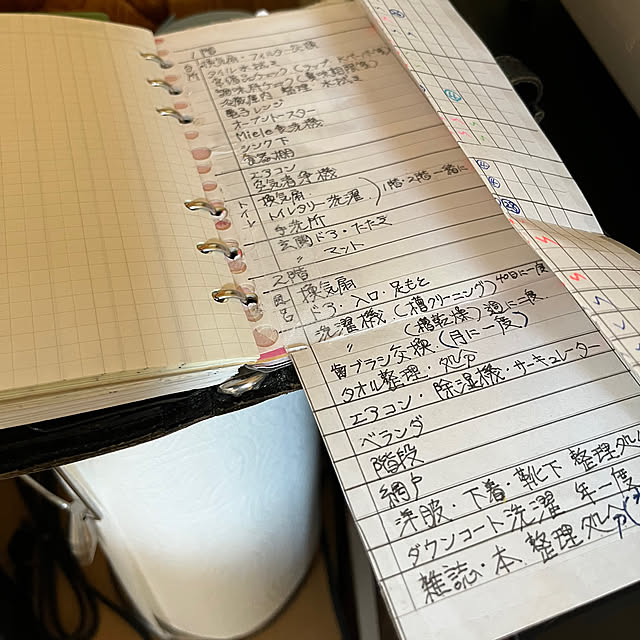 1階
台所 換気扇・フィルター交換
電子レンジ
オーブントースター
Miele食洗機
シンク下
食器棚
エアコン
空気清浄機
トイレ 換気扇
トイレタリー洗濯 1階・2階一緒に
手洗所
玄関ドア・たたき
〃 マット
2階
風呂 換気扇
ドア・入口・足もと
洗濯機(槽クリーニング) 40日に一度
〃 (槽乾燥)週に一度
歯ブラシ交換(月に一度)
タオル整理・処分
エアコン・除湿機・サーキュレーター
ベランダ
階段
網戸
洋服・下着・靴下 整理処
ダウンコート洗濯 年一度
雑誌・本 整理処分